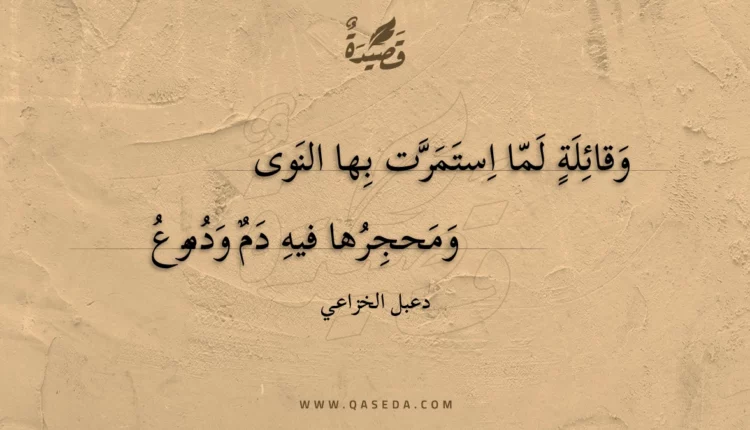 قَصِيدَةٌ
وَقائِلَةٍ لَمّا اِستَمَرَّت بِها النَوى
وَمَحجِرُها فيهِ دَمٌ وَدُموعُ
دعبل الخزاعي
WWW.QASEDA.COM